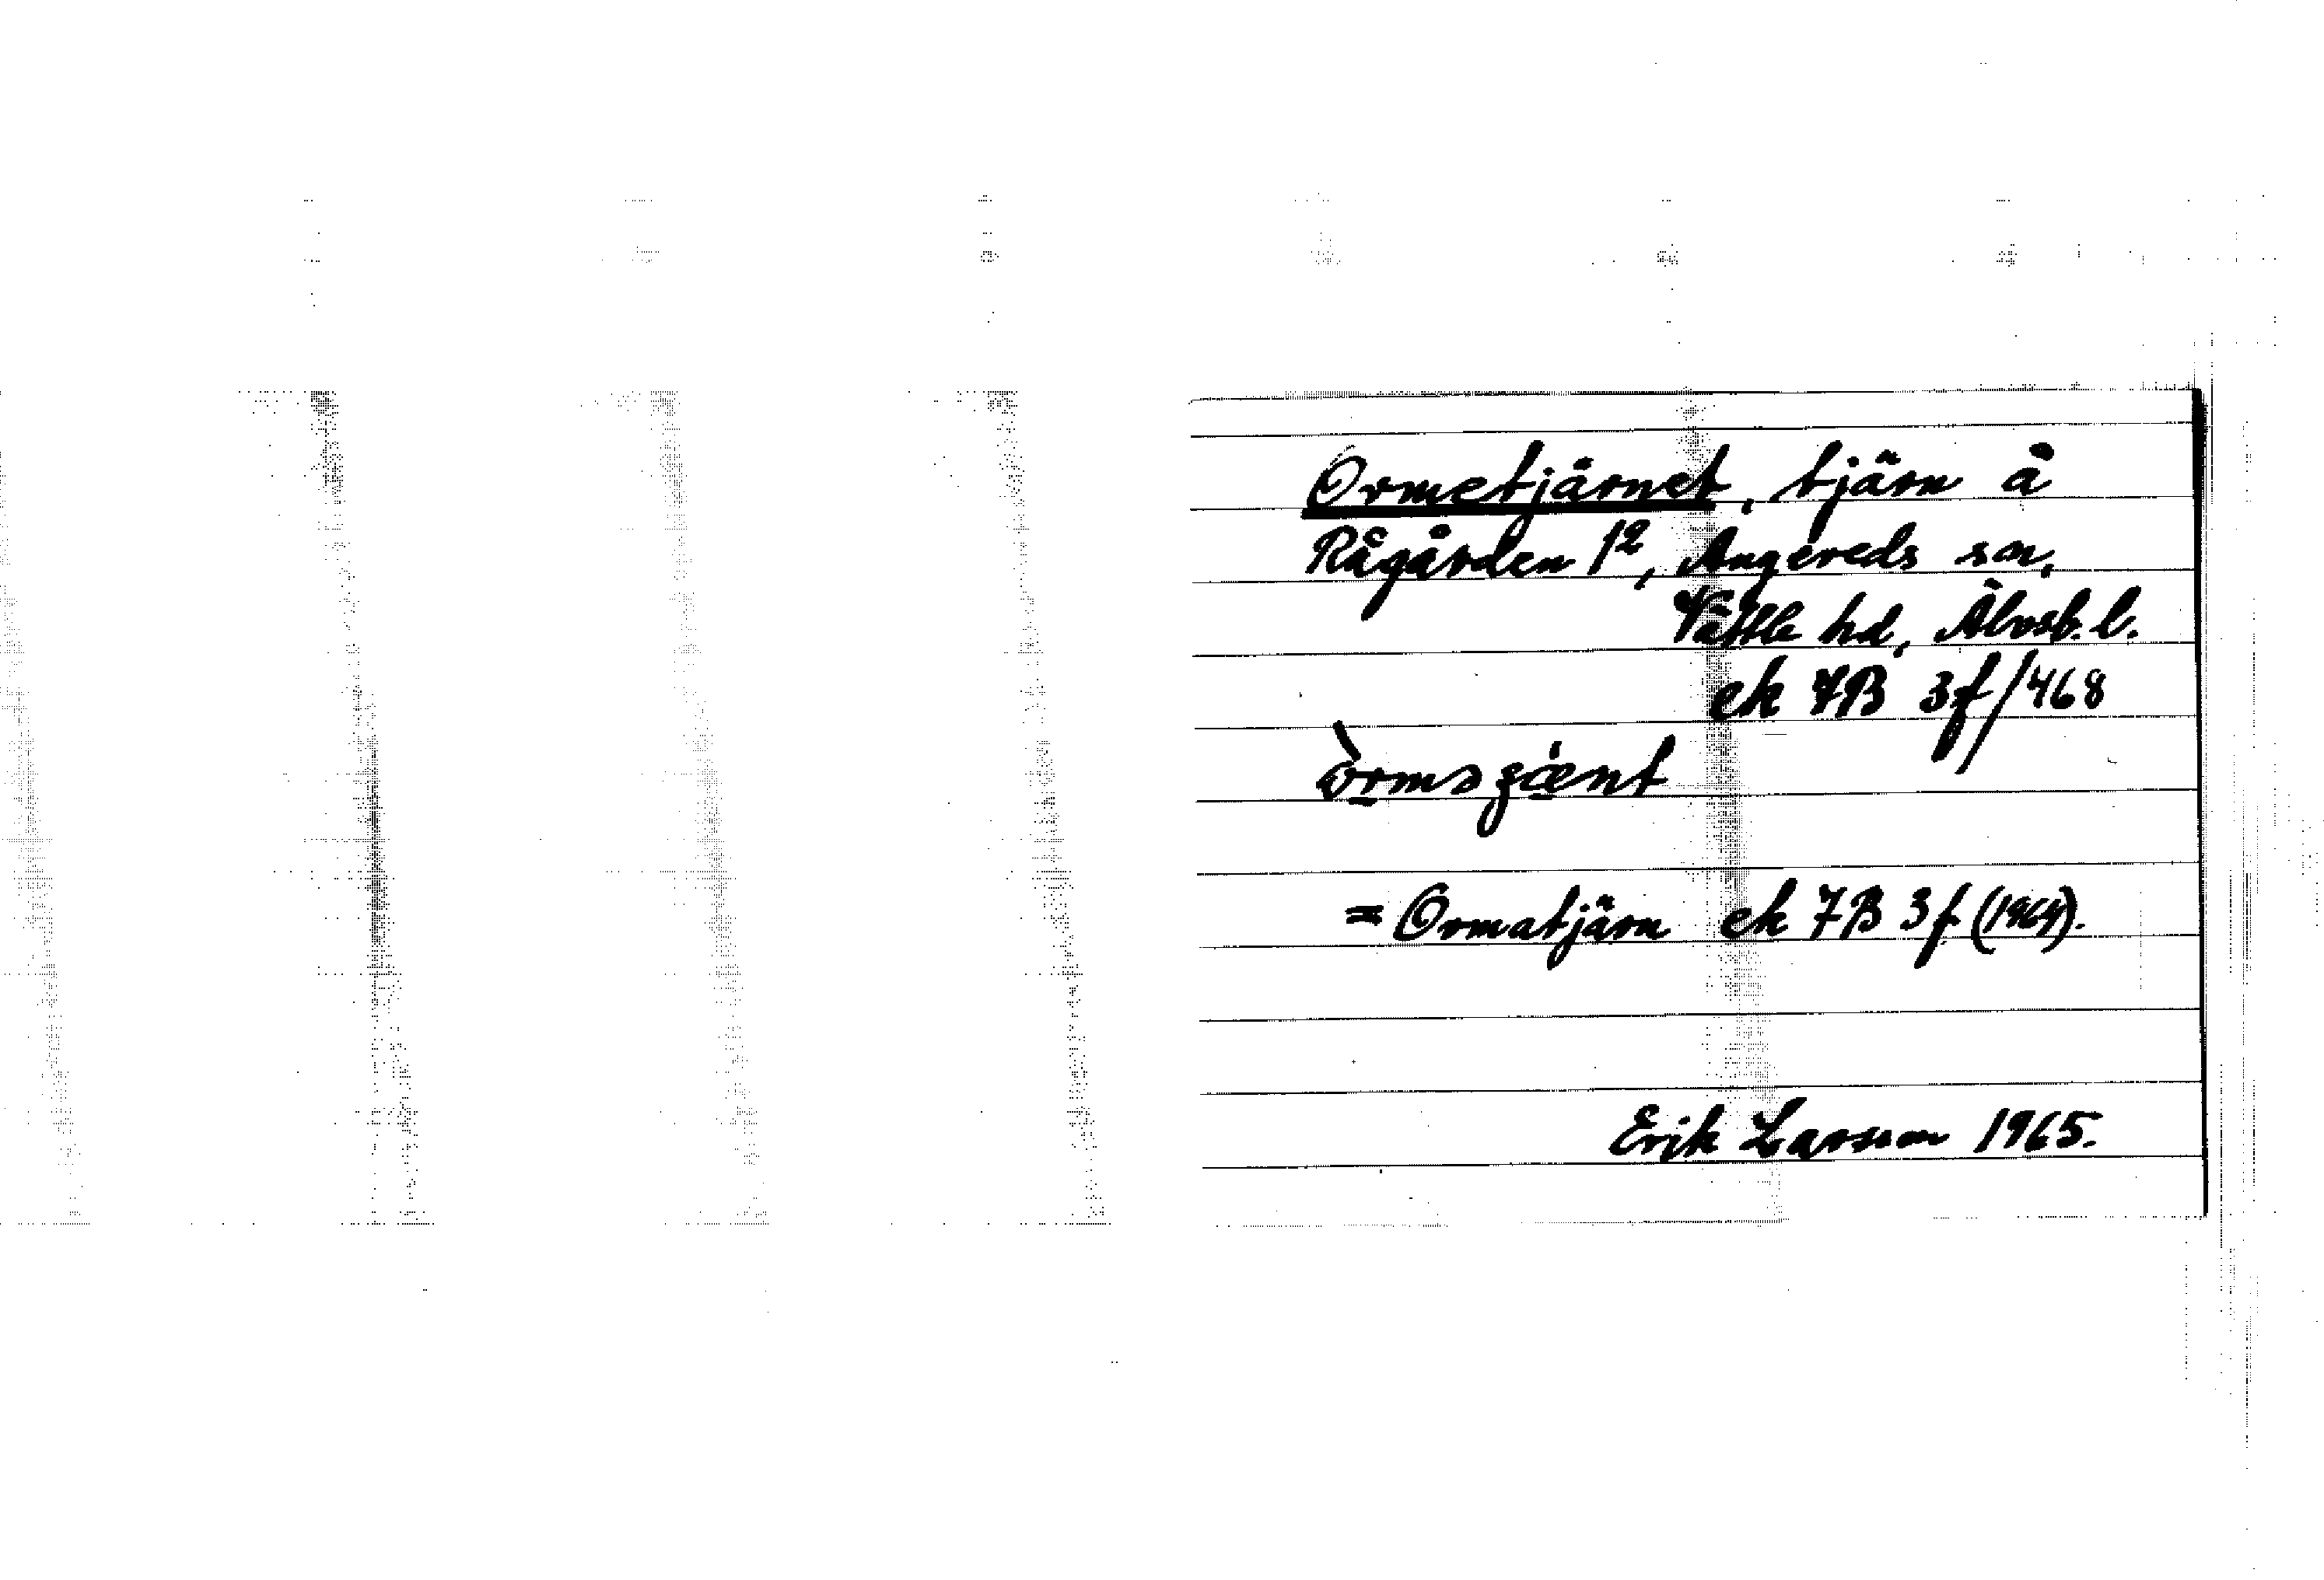 Ormetjärnet, tjärn å
Rågården 1², Angereds sn,
Vättle hd, Älvsb. l.
ek 7B 3f/468
= Ormatjärn ek 7B 3f (1964).
Erik Larsson 1965.